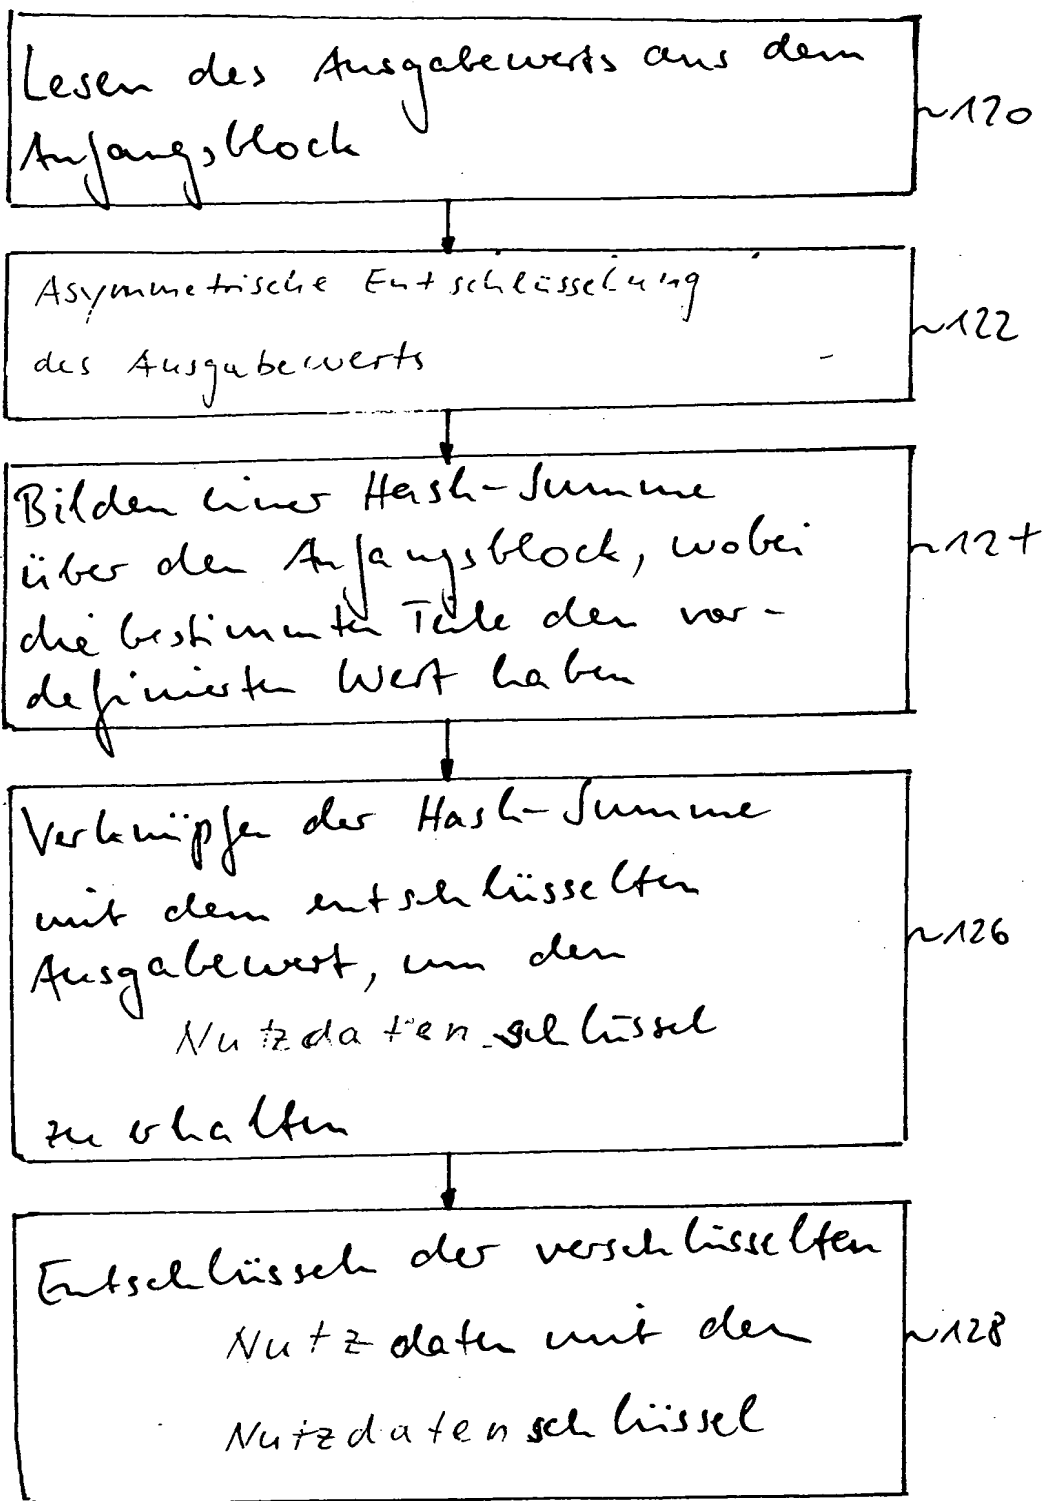 Lesen des Ausgabewerts aus dem
Anfangsblock
~120
Asymmetrische Entschlüsselung
des Ausgabewerts
~122
Bilden einer Hash-Summe
über den Anfangsblock, wobei
die bestimmten Teile den vor-
definierten Wert haben
~124
Verknüpfen der Hash-Summe
mit dem entschlüsselten
Ausgabewert, um den
Nutzdatenschlüssel
zu erhalten
~126
Entschlüsseln der verschlüsselten
Nutzdaten mit dem
Nutzdatenschlüssel
~128